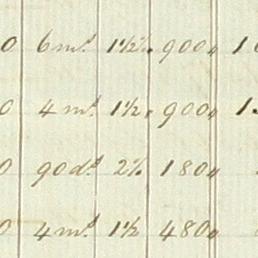 0 6 m.s 1 1/2 % 900 1
0 4 m.s 1 1/2 900 1
0 90 d.s 2 % 180
0 4 m.s 1 1/2 480